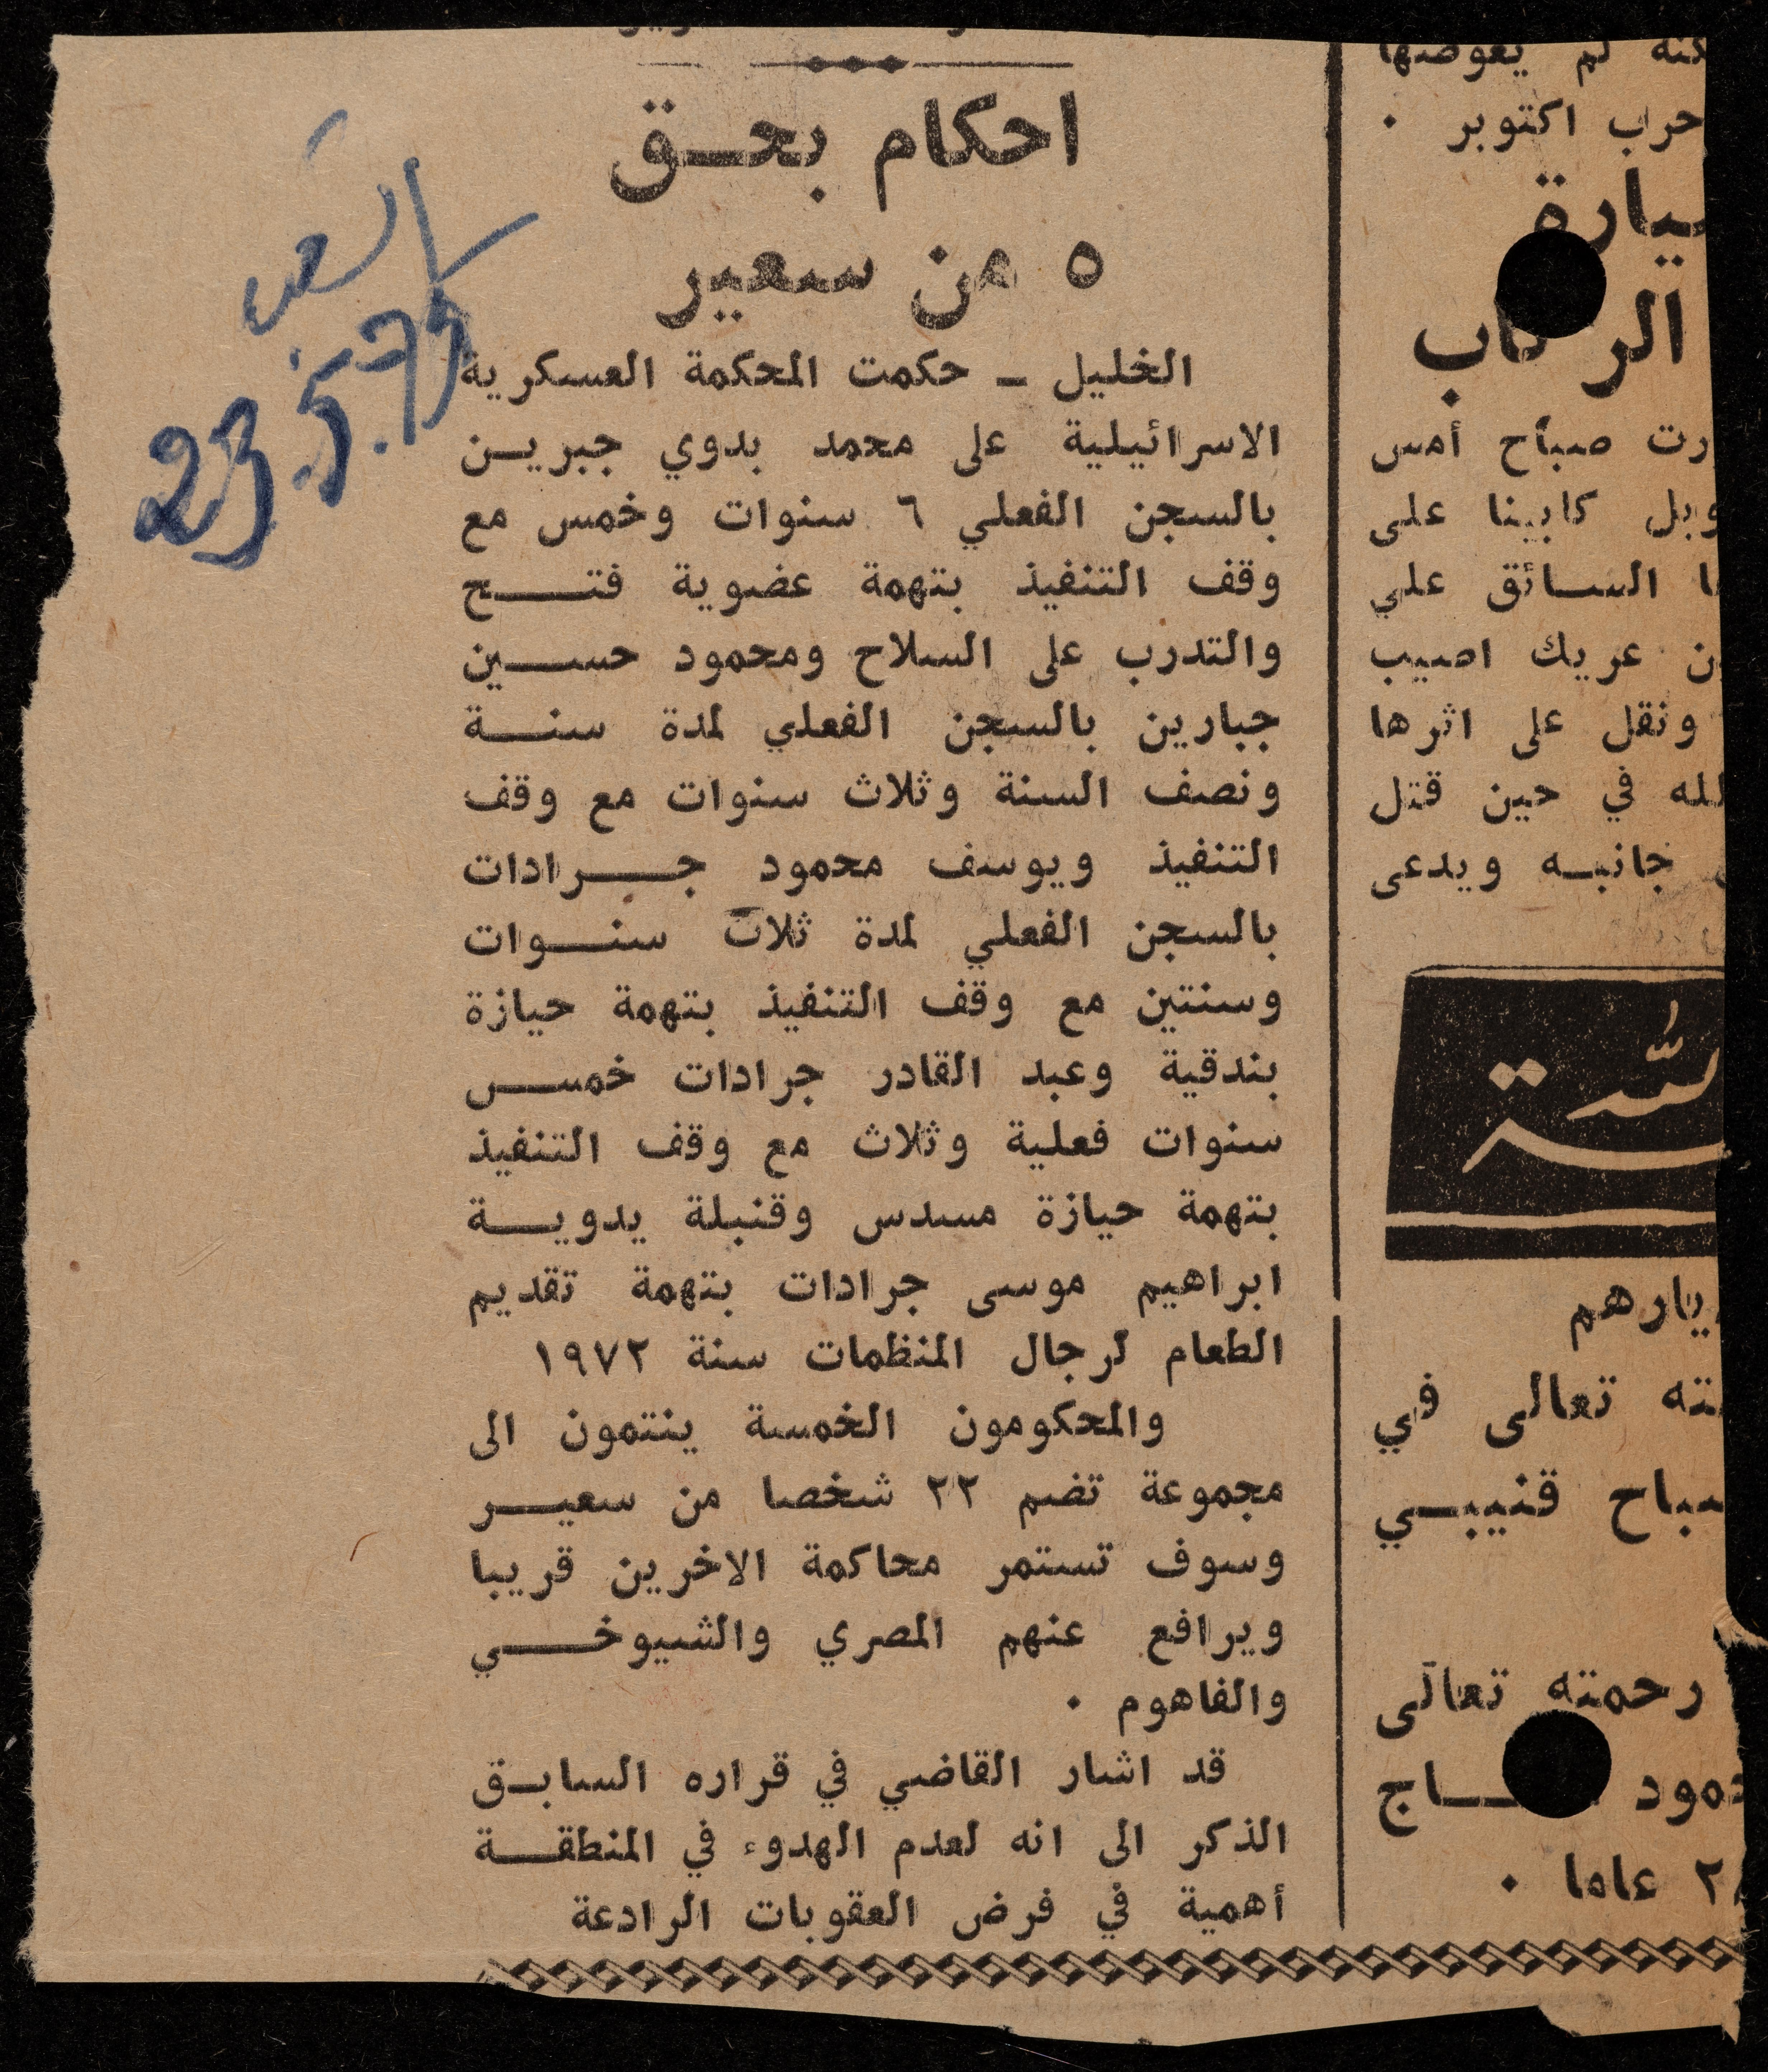 احكام بحق
٥ من سعير
الخليل ـ حكمت المحكمة العسكرية
الاسرائيلية على محمد بدوي جبرين
بالسجن الفعلي ٦ سنوات وخمس مع
وقف التنفيذ بتهمة عضوية فتح
والتدرب على السلاح ومحمود حسين
جبارين بالسجن الفعلي لمدة سنة
ونصف السنة وثلاث سنوات مع وقف
التنفيذ ويوسف محمود جرادات
بالسجن الفعلي لمدة ثلاث سنوات
وسنتين مع وقف التنفيذ بتهمة حيازة
بندقية وعبد القادر جرادات خمس
سنوات فعلية وثلاث مع وقف التنفيذ
بتهمة حيازة مسدس وقنبلة يدوية
ابراهيم موسى جرادات بتهمة تقديم
الطعام لرجال المنظمات سنة ١٩٧٢
والمحكومون الخمسة ينتمون الى
مجموعة تضم ٢٢ شخصا من سعير
وسوف تستمر محاكمة الاخرين قريبا
ويرافع عنهم المصري والشيوخي
والفاهوم ٠
قد اشار القاضي في قراره السابق
الذكر الى انه لعدم الهدوء في المنطقة
أهمية في فرض العقوبات الرادعة
23.5.75
لم يعوضها
حراب اكتوبر ٠
صباح أمس
كابينا على
السائق علي
عريك اصيب
ونقل على اثرها
في حين قتل
جانبه ويدعى
تعالى في
قنيبي
رحمته تعالى
عاما ٠